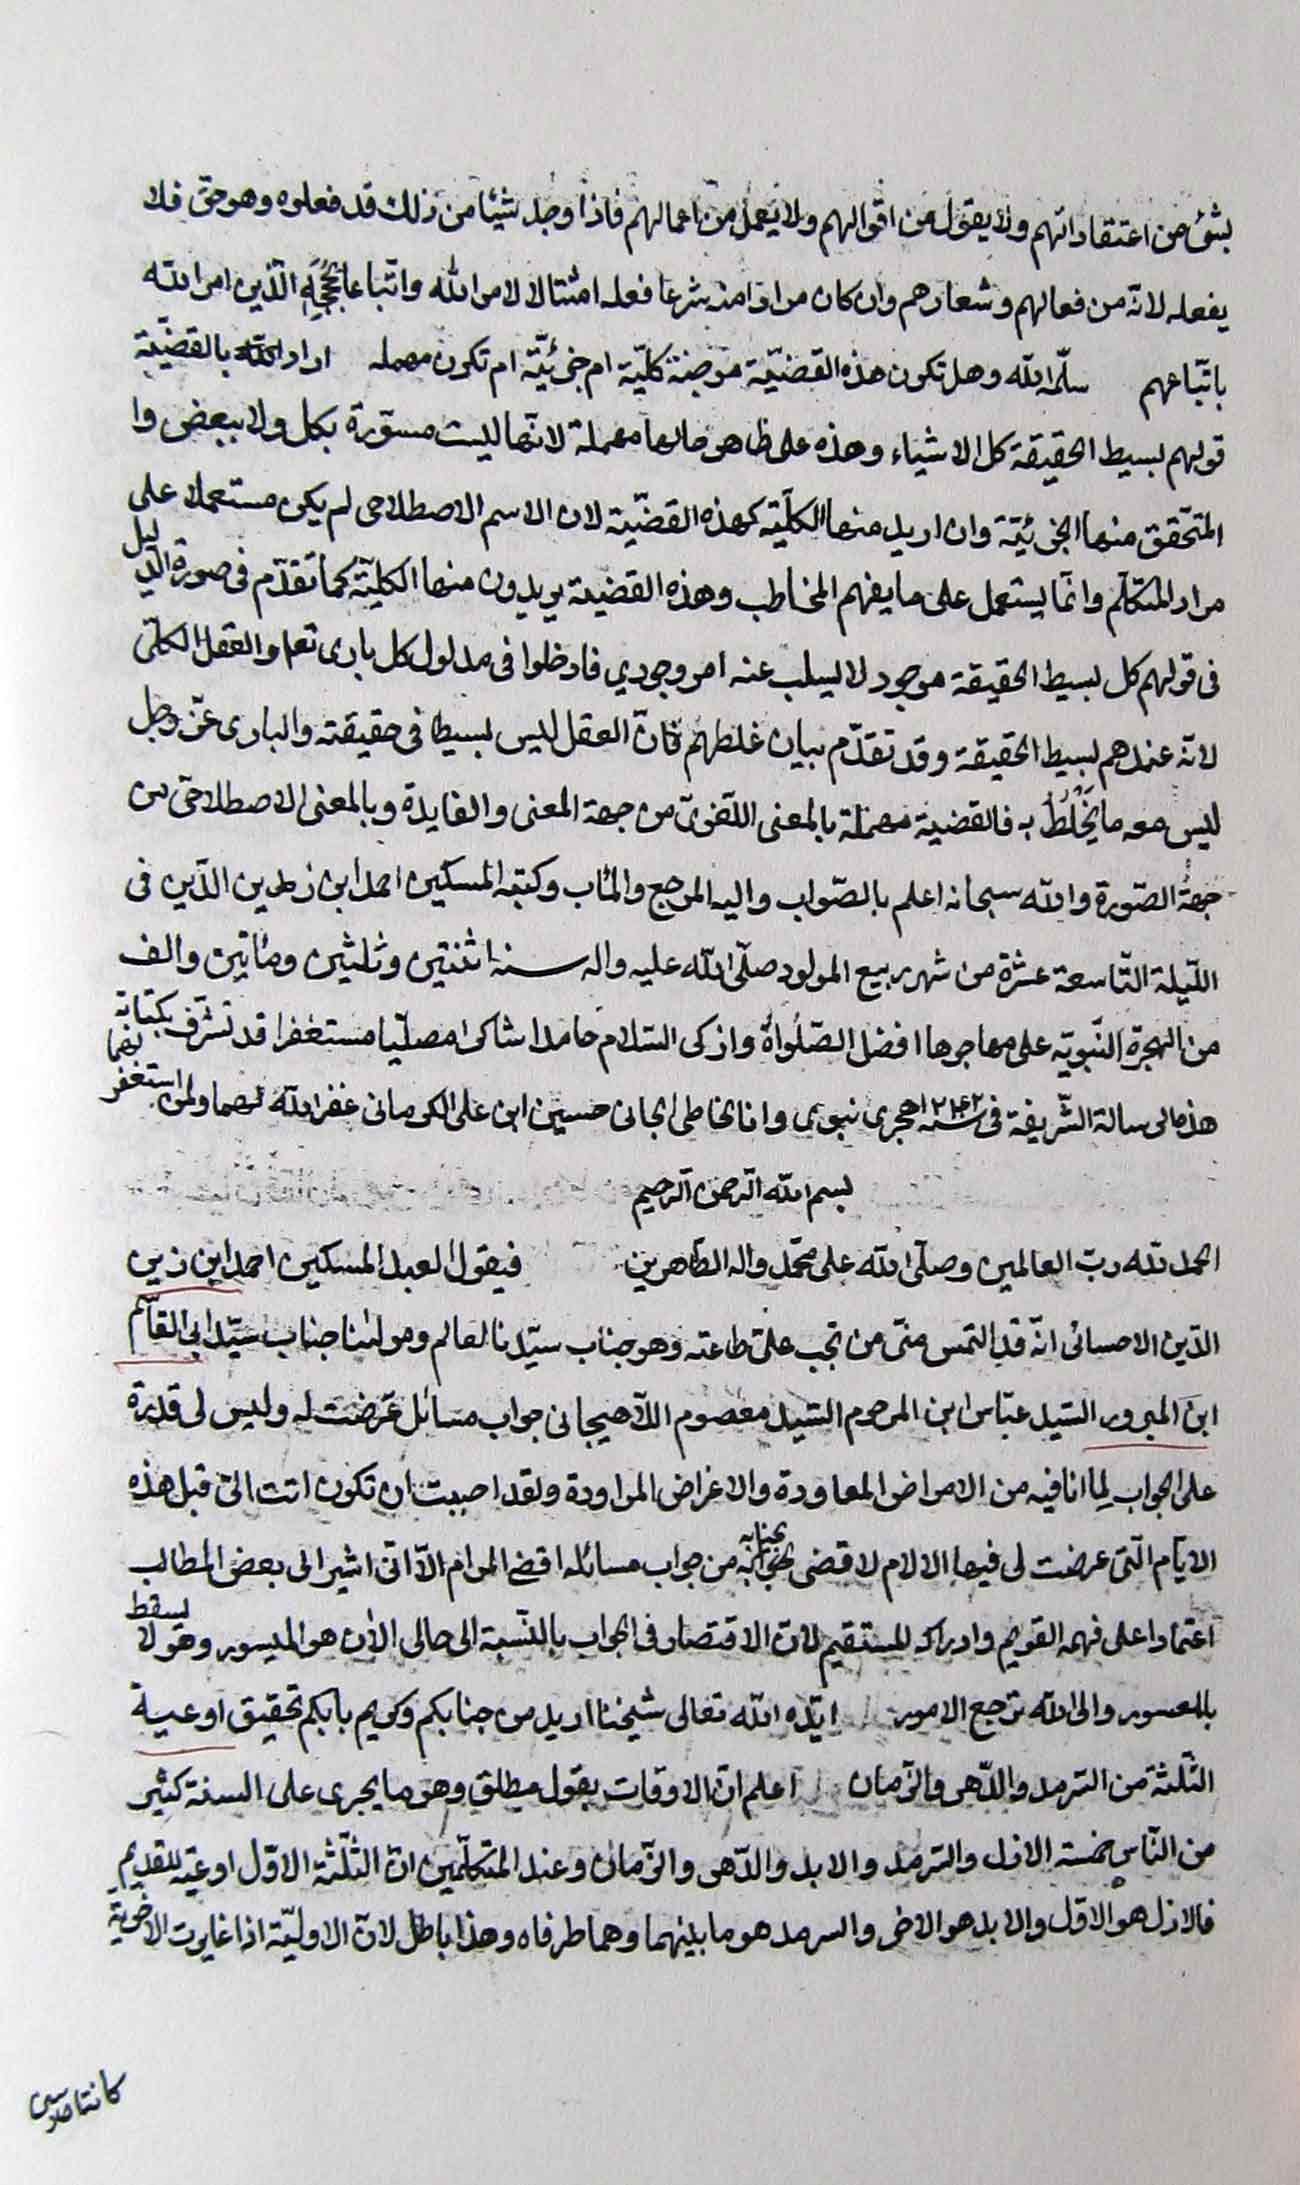 بشئ من اعتقاداتهم ولا يقول من اقوالهم ولا يعمل من اعمالهم فاذا وجد شيئا من ذلك قد فعلوه وهو حق فلا
يفعله لانه من فعالهم وشعارهم وان كان مرادا منه شرعا فعله امتثالا لامر الله واتباعا لحججه الذين امر الله
باتباعهم سلمه الله وهل تكون هذه القضية موجبة كلية ام جزئية ام تكون مهملة اراد بالقضية
قولهم بسيط الحقيقة كل الاشياء وهذه على ظاهر حالها مهملة لانها ليست مسورة بكل ولا ببعض وا
المتحقق منها الجزئية وان اريد منها الكلية كهذه القضية لان الاسم الاصطلاحى لم يكن مستعملا على
مراد المتكلم وانما يستعمل على ما يفهم المخاطب وهذه القضية يريدون منها الكلية كما تقدم فى صورة الدليل
فى قولهم كل بسيط الحقيقة موجود لا يسلب عنه امر وجودي فادخلوا فى مدلول كل بارى تعا والعقل الكلى
لانه عندهم بسيط الحقيقة وقد تقدم بيان غلطهم فان العقل ليس بسيطا فى حقيقته والبارى عز وجل
ليس معه ما يخلط به فالقضية مهملة بالمعنى اللغوى من جهة المعنى والفايدة وبالمعنى الاصطلاحى من
جهة الصورة والله سبحانه اعلم بالصواب واليه المرجع والمئاب وكتبه المسكين احمد ابن زين الدين فى
الليلة التاسعة عشرة من شهر ربيع المولود صلى الله عليه واله سنه اثنتين وثلثين ومائتين والف
من الهجرة النبوية على مهاجرها افضل الصلواة وازكى السلام حامدا شاكرا مصليا مستغفرا قد تشرف بكتابة
هذه الرسالة الشريفة فى سنه هجرى نبوى وانا الخاطى الجانى حسين ابن على الكرمانى غفر الله لهما ولمن استغفر لهما
بسم الله الرحمن الرحيم
الحمد لله رب العالمين وصلى الله على محمد واله الطاهرين فيقول العبد المسكين احمد ابن زين
الدين الاحسائى انه قد التمس منى من تجب على طاعته وهو جناب سيدنا العالم ومولانا جناب سيد ابى القاسم
ابن المبرور السيد عباس ابن المرحوم السيد معصوم اللاهيجانى جواب مسائل عرضت له وليس لى قدرة
على الجواب لما انا فيه من الامراض المعاودة والاغراض المراودة ولقد احببت ان تكون اتت الى قبل هذه
الايام التى عرضت لى فيها الالام لاقضى لجنابه من جواب مسائله اقصى المرام الا انى اشير الى بعض المطالب
اعتمادا على فهمه القويم وادراكه المستقيم لان الاقتصار فى الجواب بالنسبة الى حالى الان هو الميسور وهو لا يسقط
بالمعسور والى الله ترجع الامور ايده الله تعالى شيخنا اريد من جنابكم وكريم بابكم تحقيق اوعية
الثلثة من السرمد والدهر والزمان اعلم ان الاوقات بقول مطلق وهو ما يجرى على السنة كثير
من الناس خمسة الازل والسرمد والابد والدهر والزمان وعند المتكلمين ان الثلثة الاول اوعية للقديم
فالازل هو الاول والابد هو الاخر والسرمد هو ما بينهما وهما طرفاه وهذا باطل لان الاولية اذا غايرت الاخرية